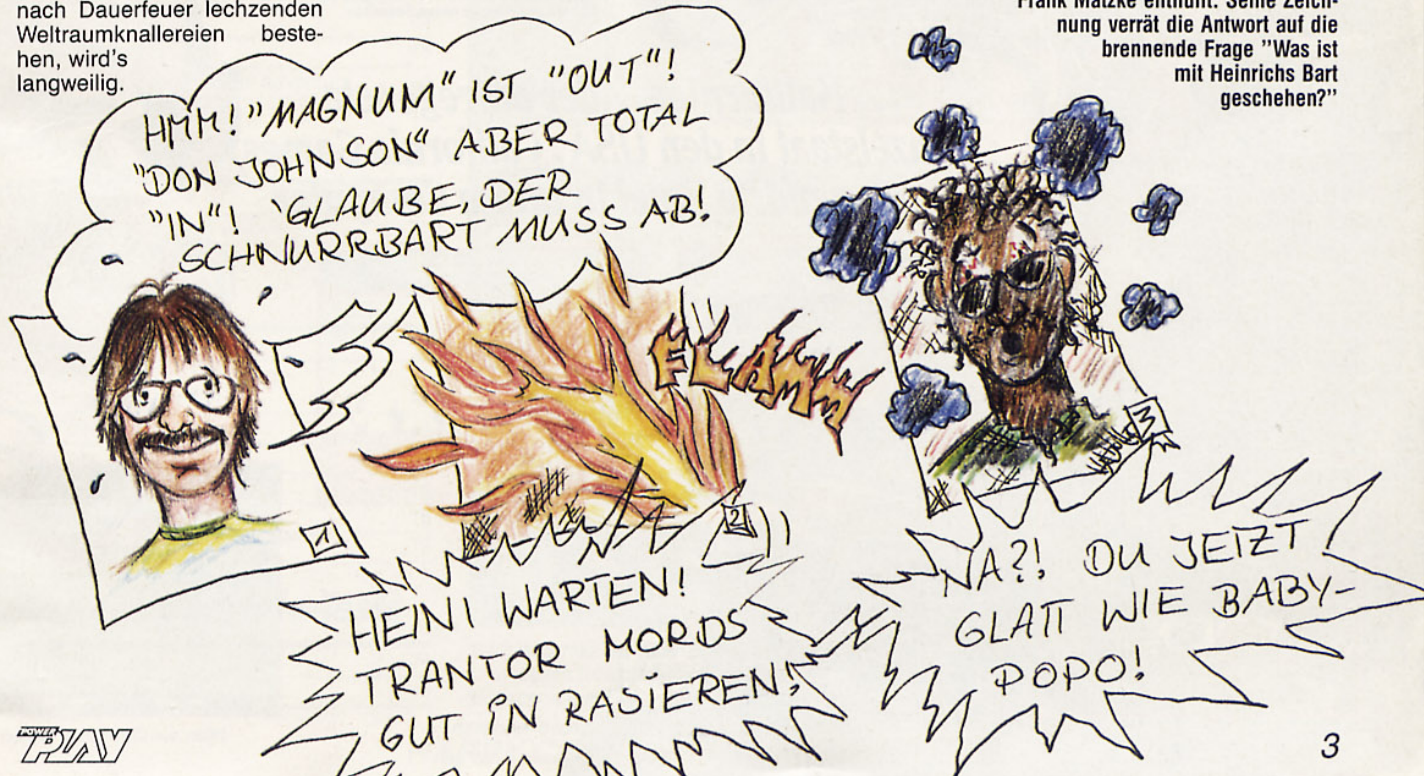 nach Dauerfeuer lechzenden
Weltraumknallereien beste-
hen, wird's
langweilig.
Frank Matzke enthüllt: Seine Zeich-
nung verrät die Antwort auf die
brennende Frage "Was ist
mit Heinrichs Bart
geschehen?"
HMM! "MAGNUM" IST "OUT"!
"DON JOHNSON" ABER TOTAL
"IN"! 'GLAUBE, DER
SCHNURRBART MUSS AB!
1
FLAMM
2
HEINI WARTEN!
TRANTOR MORDS
GUT IN RASIEREN!
3
NA?! DU JETZT
GLATT WIE BABY-
POPO!
POWER
PLAY
3